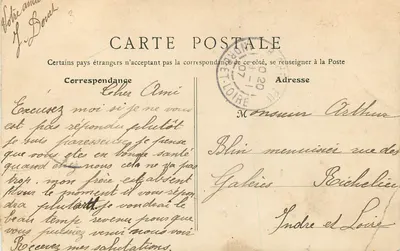 Votre ami
J. Borat
CARTE POSTALE
Certains pays étrangers n'acceptant pas la correspondance de ce côté, se renseigner à la Poste
Correspondance
Adresse
Cher Ami
Excusez moi si je ne vous
est pas répondu plutôt
je suis je pense
que vous etes en bonne santé
quand à nous cela ne va pas
trop. mon frère est absent
pour le moment et vous répon
dra plutart je voudrai le
beau temps revenu pour que
vous puissiez venir nous voir
Recevez mes salutations.
Monsieur Arthur
Blin menuisier rue des
Galères Richelieu
Indre et Loire